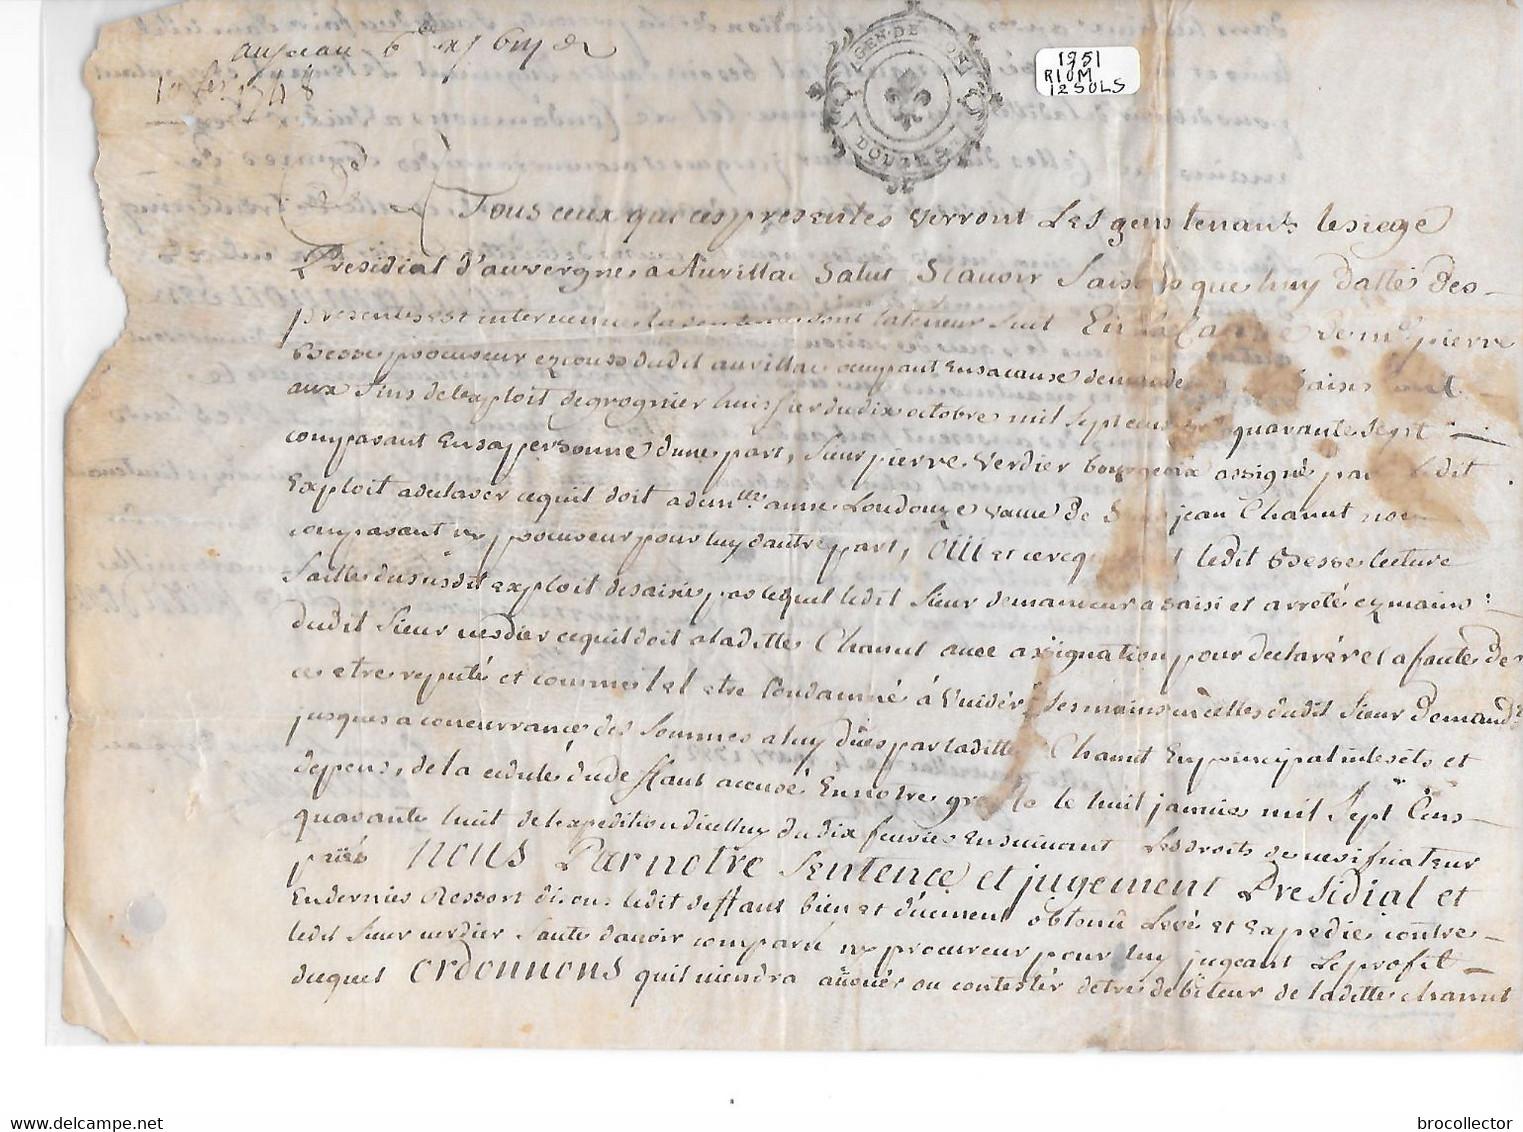 1748
GEN. DE RIOM
DOUZE S
1951
RIOM
12 SOLS
A Tous ceux que ces presentes verront Les gens tenants le siege
Presidial d'auvergne a Aurillac Salut Scauoir faisons que huy datte des
presentes est interuenue la sentence dont lateneur suit En La Cause de me pierre
Besse procureur ez cours dudit aurillac occupant en sa cause demandeur saisie
aux fins de lexploit de grognier huissier du dix octobre mil sept cens quarante sept
comparant En sa personne dune part, sieur pierre verdier bourgeois assigné par ledit
Exploit a declarer ce quil doit a demlle anne Loudouze veuve de Sieur jean Chanut non
comparant ny procureur pour luy dautre part, OUI et ce requerant ledit Besse lecture
faitte du susdit exploit de saisie par lequel ledit sieur demandeur a saisi et arrêté ez mains
dudit sieur verdier ce quil doit a laditte Chanut avec assignation pour declarer et a faute de
ce etre reputé et comme tel etre Condamné à Vuider Ses mains en celles dudit sieur Demandr
jusques a concurrance des sommes a luy dües par laditte Chanut En principal interets et
depens, de la cedule du deffaut accusé En notre greffe le huit janvier mil Sept Cens
quarante huit de lexpedition dicelluy du dix feurier Ensuiuant Les droits de verificateur
païés nous Par notre Sentence et jugement Presidial et
En dernier Ressort disons ledit deffaut bien et düement obtenu Levé et Expedié contre
ledit sieur verdier faute dauoir comparu ny procureur pour luy jugeant Le profit
duquel ordonnons quil viendra aüoüer ou contester detre debiteur de laditte chanut
brocollector